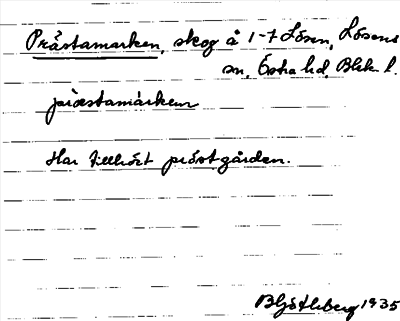 Prästamarken, skog å 1-7 Lösen, Lösens
sn, Östra hd, Blek. l.
präestamárken
Har tillhört prästgården.
B Götlberg 1935